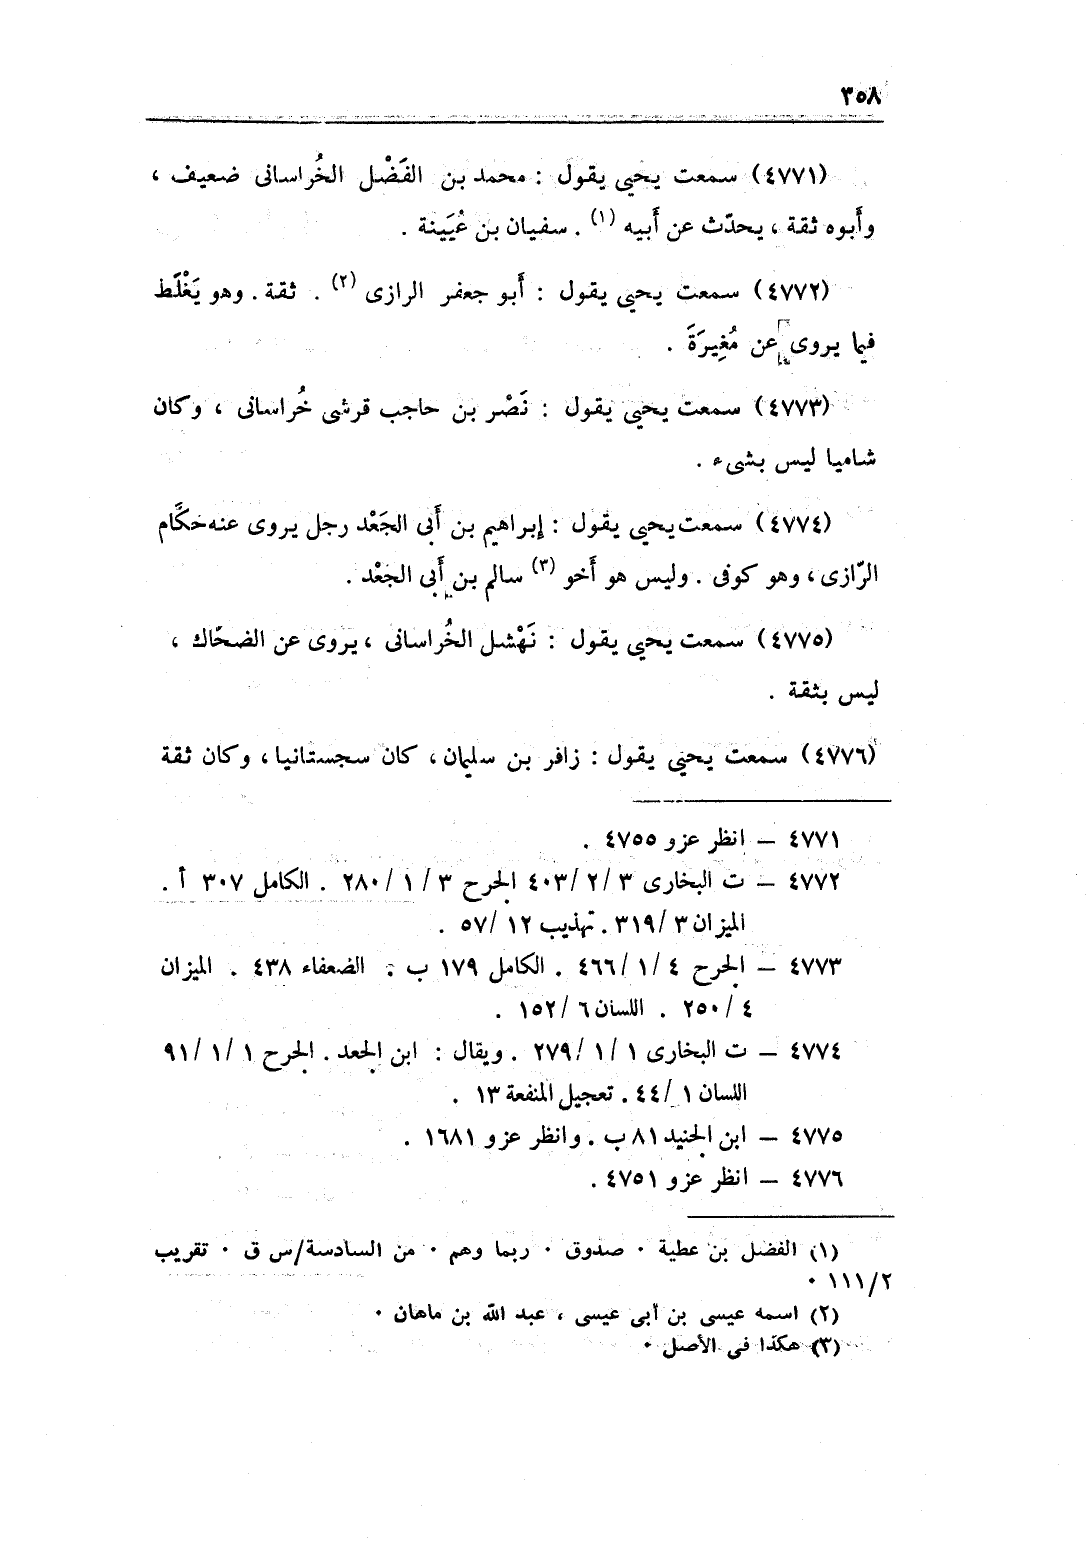 ٣٥٨
(٤٧٧١) سمعت يحيى يقول : محمد بن الفَضْل الخُراسانى ضعيف ،
وأَبوه ثقة ، يحدّث عن أَبيه (١) . سفيان بن عُيَينة .
(٤٧٧٢) سمعت يحيى يقول : أَبو جعفر الرازى (٢) . ثقة . وهو يَغْلَط
فيما يروى عن مُغِيرَةَ .
(٤٧٧٣) سمعت يحيى يقول : نَصْر بن حاجب قرشى خُراسانى ، وكان
شاميا ليس بشىء .
(٤٧٧٤) سمعت يحيى يقول : إبراهيم بن أَبى الجَعْد رجل يروى عنه حكَّام
الرّازى ، وهو كوفى . وليس هو أَخو (٣) سالم بن أَبى الجعْد .
(٤٧٧٥) سمعت يحيى يقول : نَهْشل الخُراسانى ، يروى عن الضحّاك ،
ليس بثقة .
(٤٧٧٦) سمعت يحيى يقول : زافر بن سليمان ، كان سجستانيا ، وكان ثقة
٤٧٧١ – انظر عزو ٤٧٥٥ .
٤٧٧٢ – ت البخارى ٣ /٢ /٤٠٣ الجرح ٣ /١ /٢٨٠ . الكامل ٣٠٧ أ .
الميزان ٣ /٣١٩ . تهذيب ١٢ /٥٧ .
٤٧٧٣ – الجرح ٤ /١ /٤٦٦ . الكامل ١٧٩ ب . الضعفاء ٤٣٨ . الميزان
٤ /٢٥٠ . اللسان ٦ /١٥٢ .
٤٧٧٤ – ت البخارى ١ /١ /٢٧٩ . ويقال : ابن الجعد . الجرح ١ /١ /٩١
اللسان ١ /٤٤ . تعجيل المنفعة ١٣ .
٤٧٧٥ – ابن الجنيد ٨١ ب . وانظر عزو ١٦٨١ .
٤٧٧٦ – انظر عزو ٤٧٥١ .
(١) الفضل بن عطية ٠ صدوق ٠ ربما وهم ٠ من السادسة/س ق ٠ تقريب
٢/١١١ ٠
(٢) اسمه عيسى بن أبى عيسى ، عبد الله بن ماهان ٠
(٣) هكذا فى الأصل ٠